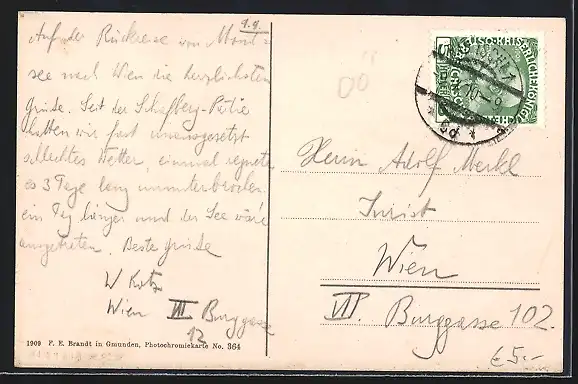 1.9.
Auf der Rückreise von Mond=
see nach Wien die herzlichsten
Grüße. Seit der Schafberg-Partie
hatten wir fast unausgesetzt
schlechtes Wetter, einmal regnete
es 3 Tage lang ununterbrochen
ein Tag länger und der See wäre
ausgetreten. Beste Grüße
W Kotz
Wien VII Burggasse
12
1909 F. E. Brandt in Gmunden, Photochromiekarte No. 364
Herrn Adolf Merkl
Jurist
Wien
VII. Burggasse 102.
€5.-